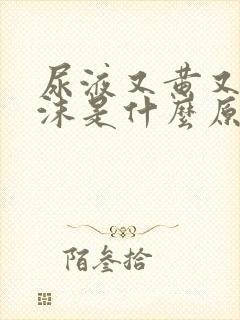 尿液又黄又
沫是什麼原
陌叁拾